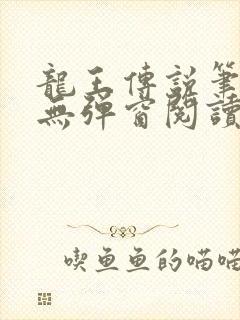 龍王傳說筆
無彈窗閱讀
喫魚魚的喵喵